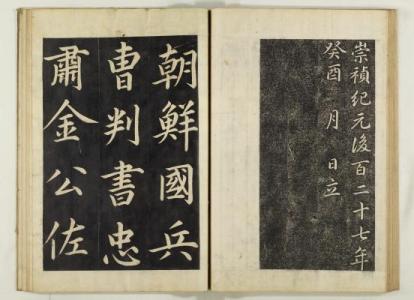 崇禎紀元後百二十七年
癸酉 月 日立
朝鮮國兵
曹判書忠
肅金公佐